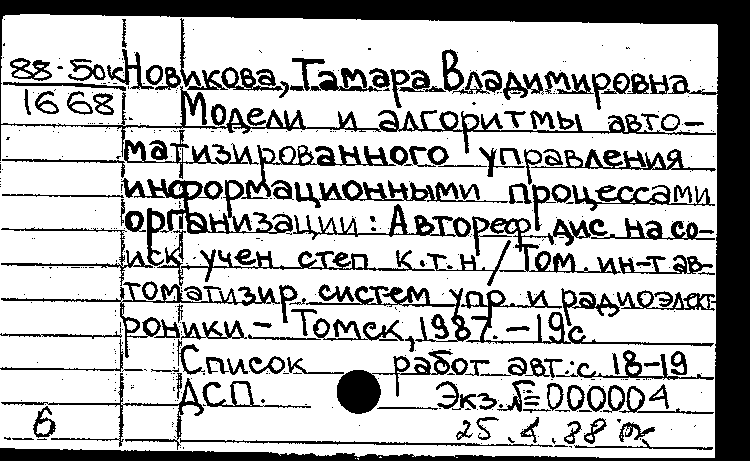 88-5ок Новикова, Тамара Владимировна
1668 Модели и алгоритмы авто-
матизированного управления
информационными процессами
организации: Автореф. дис. на со-
иск. учен. степ. к.т.н. / Том. ин-т ав-
томатизир. систем упр. и радиоэлект-
роники. - Томск, 1987. - 19с.
Список работ авт.: с. 18-19.
ДСП. Экз. № 000004.
б 25.4.88